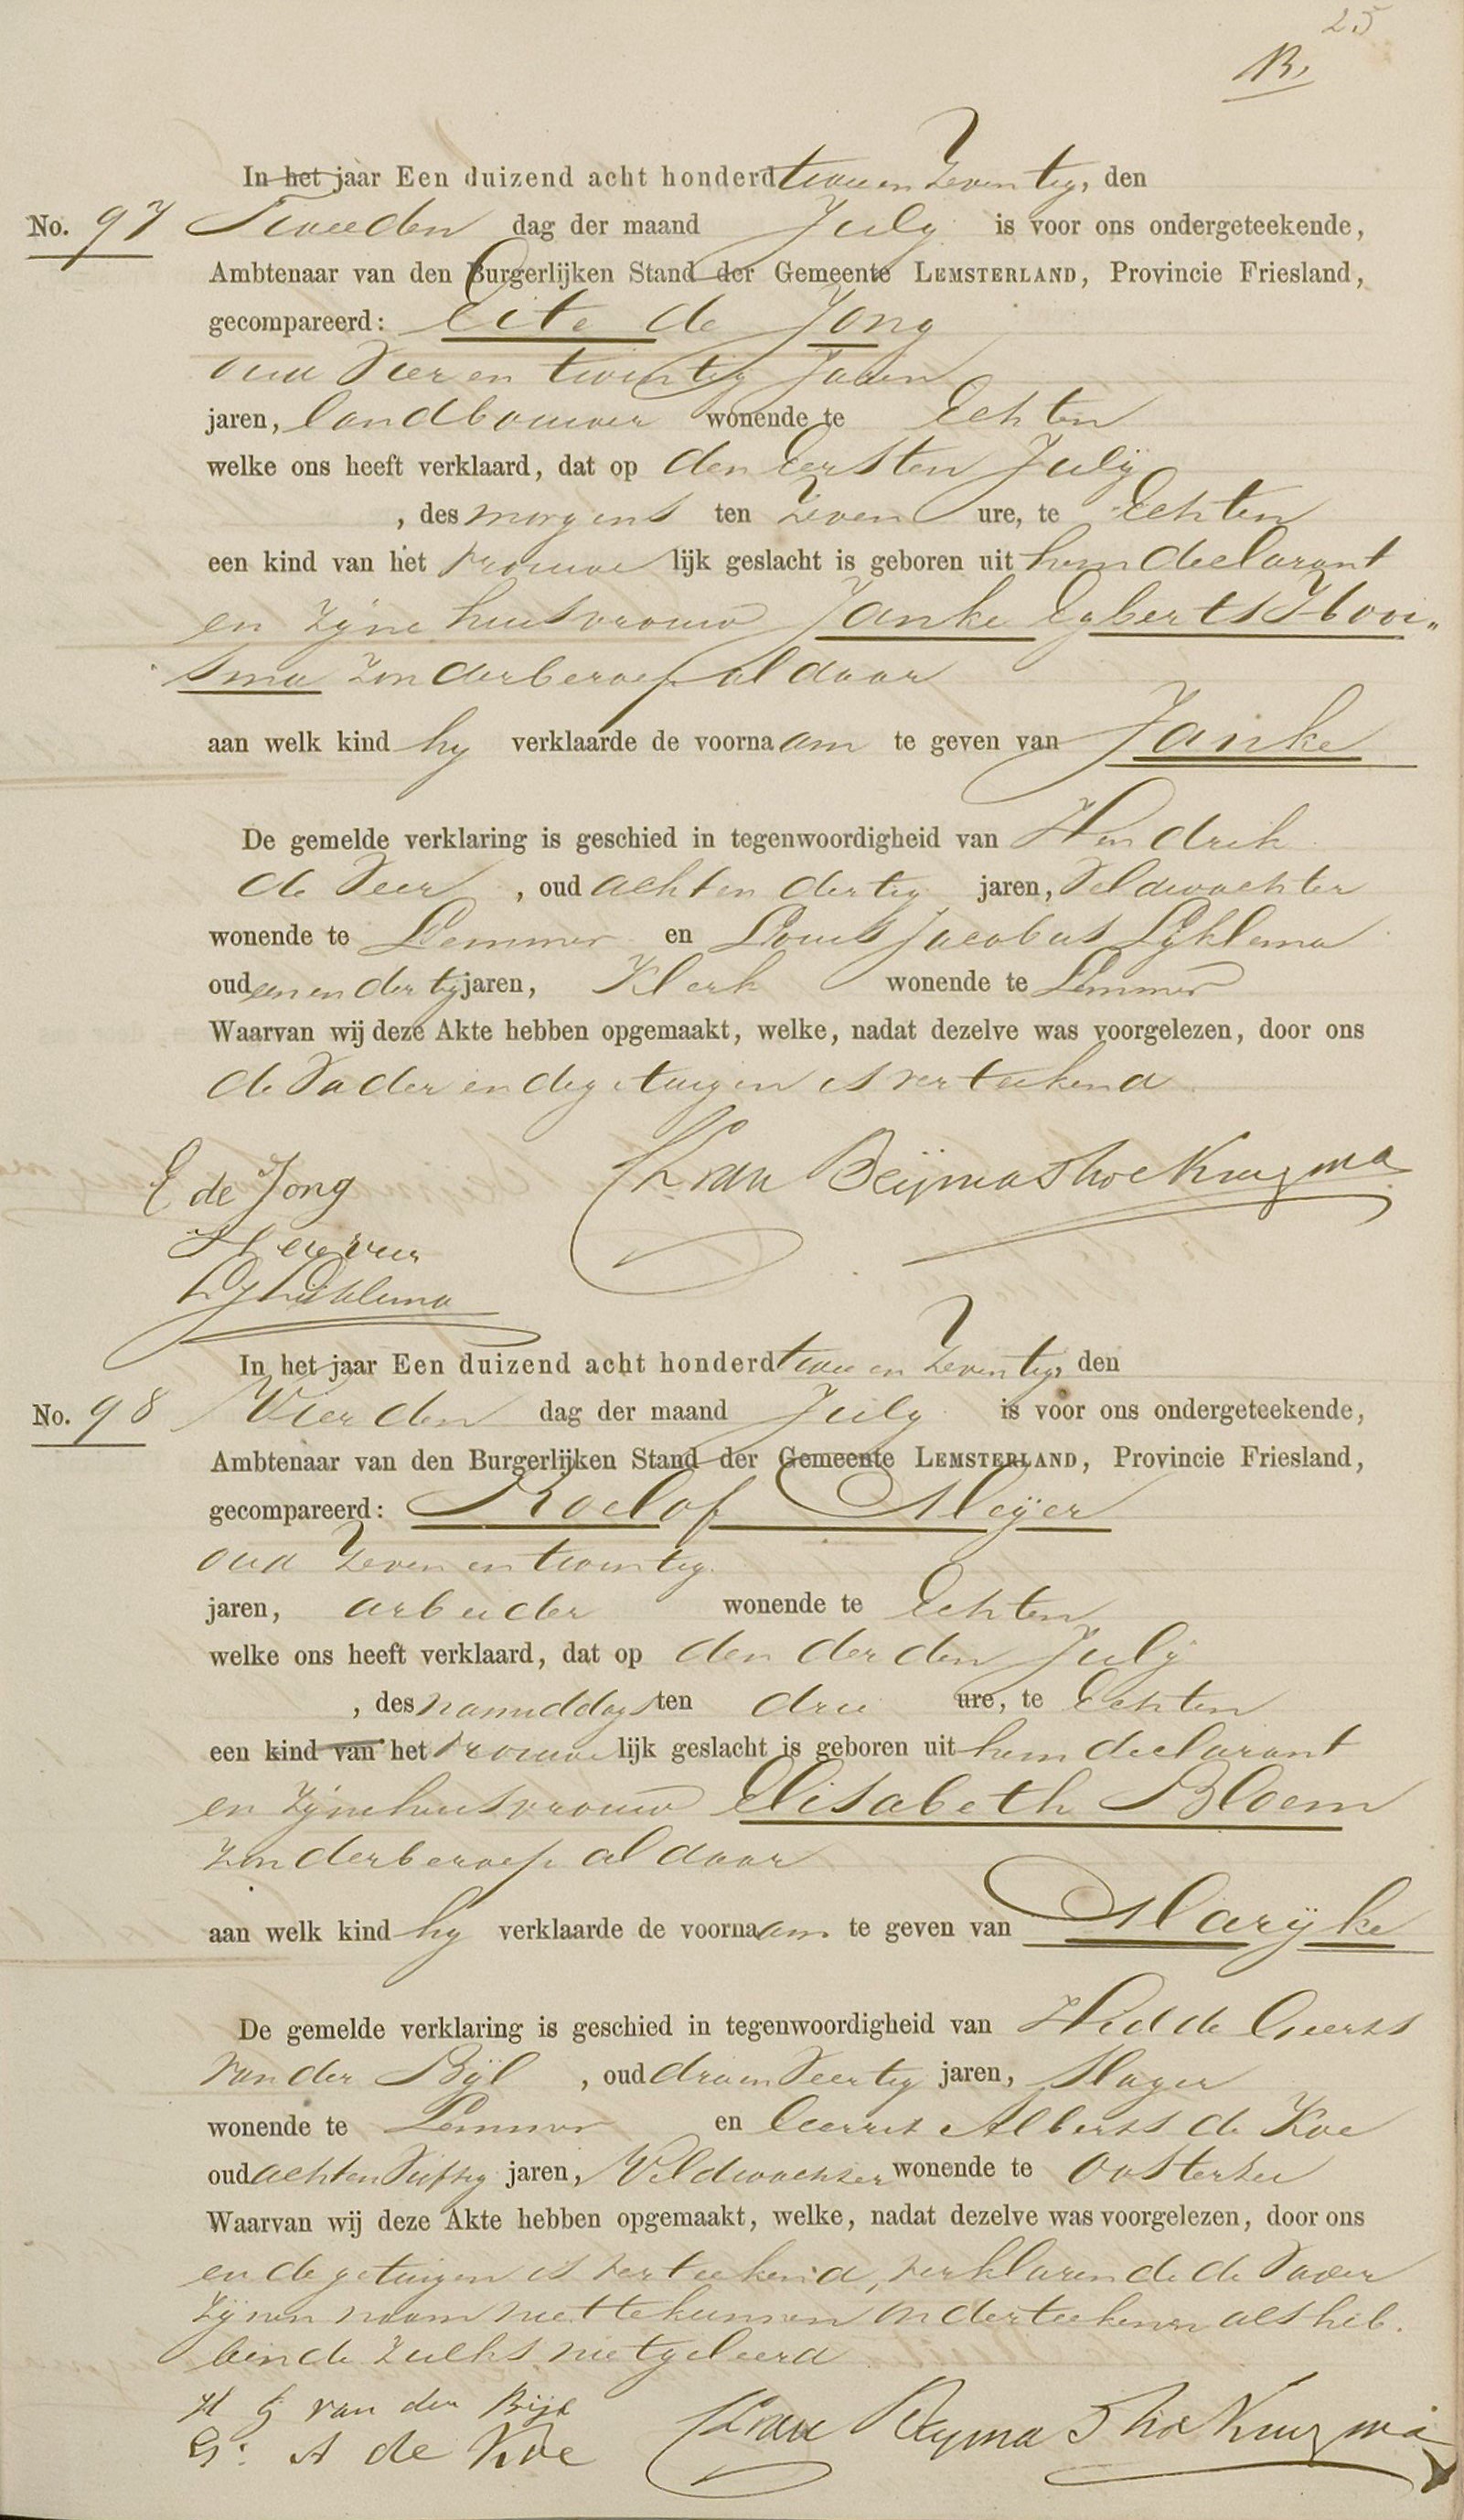 25
B,
In het jaar Een duizend acht honderd twee en zeventig, den
No. 97 Tweeden dag der maand July is voor ons ondergeteekende,
Ambtenaar van den Burgerlijken Stand der Gemeente LEMSTERLAND, Provincie Friesland,
gecompareerd: Eite de Jong
oud Vier en twintig Jaren
jaren, landbouwer wonende te Echten
welke ons heeft verklaard, dat op den Eersten July
, des morgens ten Zeven ure, te Echten
een kind van het vrouwe lijk geslacht is geboren uit hem declarant
en zijne huisvrouw Janke Egberts
sma zonder beroep aldaar
aan welk kind hy verklaarde de voornaam te geven van Janke
De gemelde verklaring is geschied in tegenwoordigheid van Hendrik
de Veer , oud acht en dertig jaren, Veldwachter
wonende te Lemmer en Louis Jacobus Lyklema
oud een en dertig jaren, Klerk wonende te Lemmer
Waarvan wij deze Akte hebben opgemaakt, welke, nadat dezelve was voorgelezen, door ons
de Vader en de getuigen is verteekend
E de Jong
van Beijma thoe Kingma
LJ Lijklema
In het jaar Een duizend acht honderd twee en zeventig, den
No. 98 Vierden dag der maand July is voor ons ondergeteekende,
Ambtenaar van den Burgerlijken Stand der Gemeente LEMSTERLAND, Provincie Friesland,
gecompareerd: Roelof Meijer
oud Zeven en twintig
jaren, arbeider wonende te Echten
welke ons heeft verklaard, dat op den derden July
, des namiddags ten drie ure, te Echten
een kind van het vrouwe lijk geslacht is geboren uit hem declarant
en zijne huisvrouw Elisabeth Bloem
zonder beroep aldaar
aan welk kind hy verklaarde de voornaam te geven van Marijke
De gemelde verklaring is geschied in tegenwoordigheid van Hidde Geerts
van der Bijl , oud drie en Veertig jaren, Slager
wonende te Lemmer en Gerrit Alberts de Koe
oud acht en Vijftig jaren, Veldwachter wonende te Oosterzee
Waarvan wij deze Akte hebben opgemaakt, welke, nadat dezelve was voorgelezen, door ons
en de getuigen is verteekend, verklarende de Vader
zijnen naam niet te kunnen onderteekenen als heb.
bende zulks niet geleerd
H G van der Bijl
van Beyma thoe Kingma
G: A de Koe